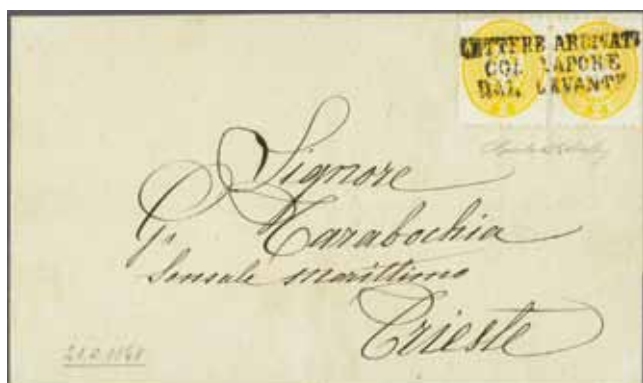 LETTERE ARRIVATE
COL VAPORE
DAL LEVANTE
Signore
Gᵃ Marabochia
Sensale marittimo
Trieste